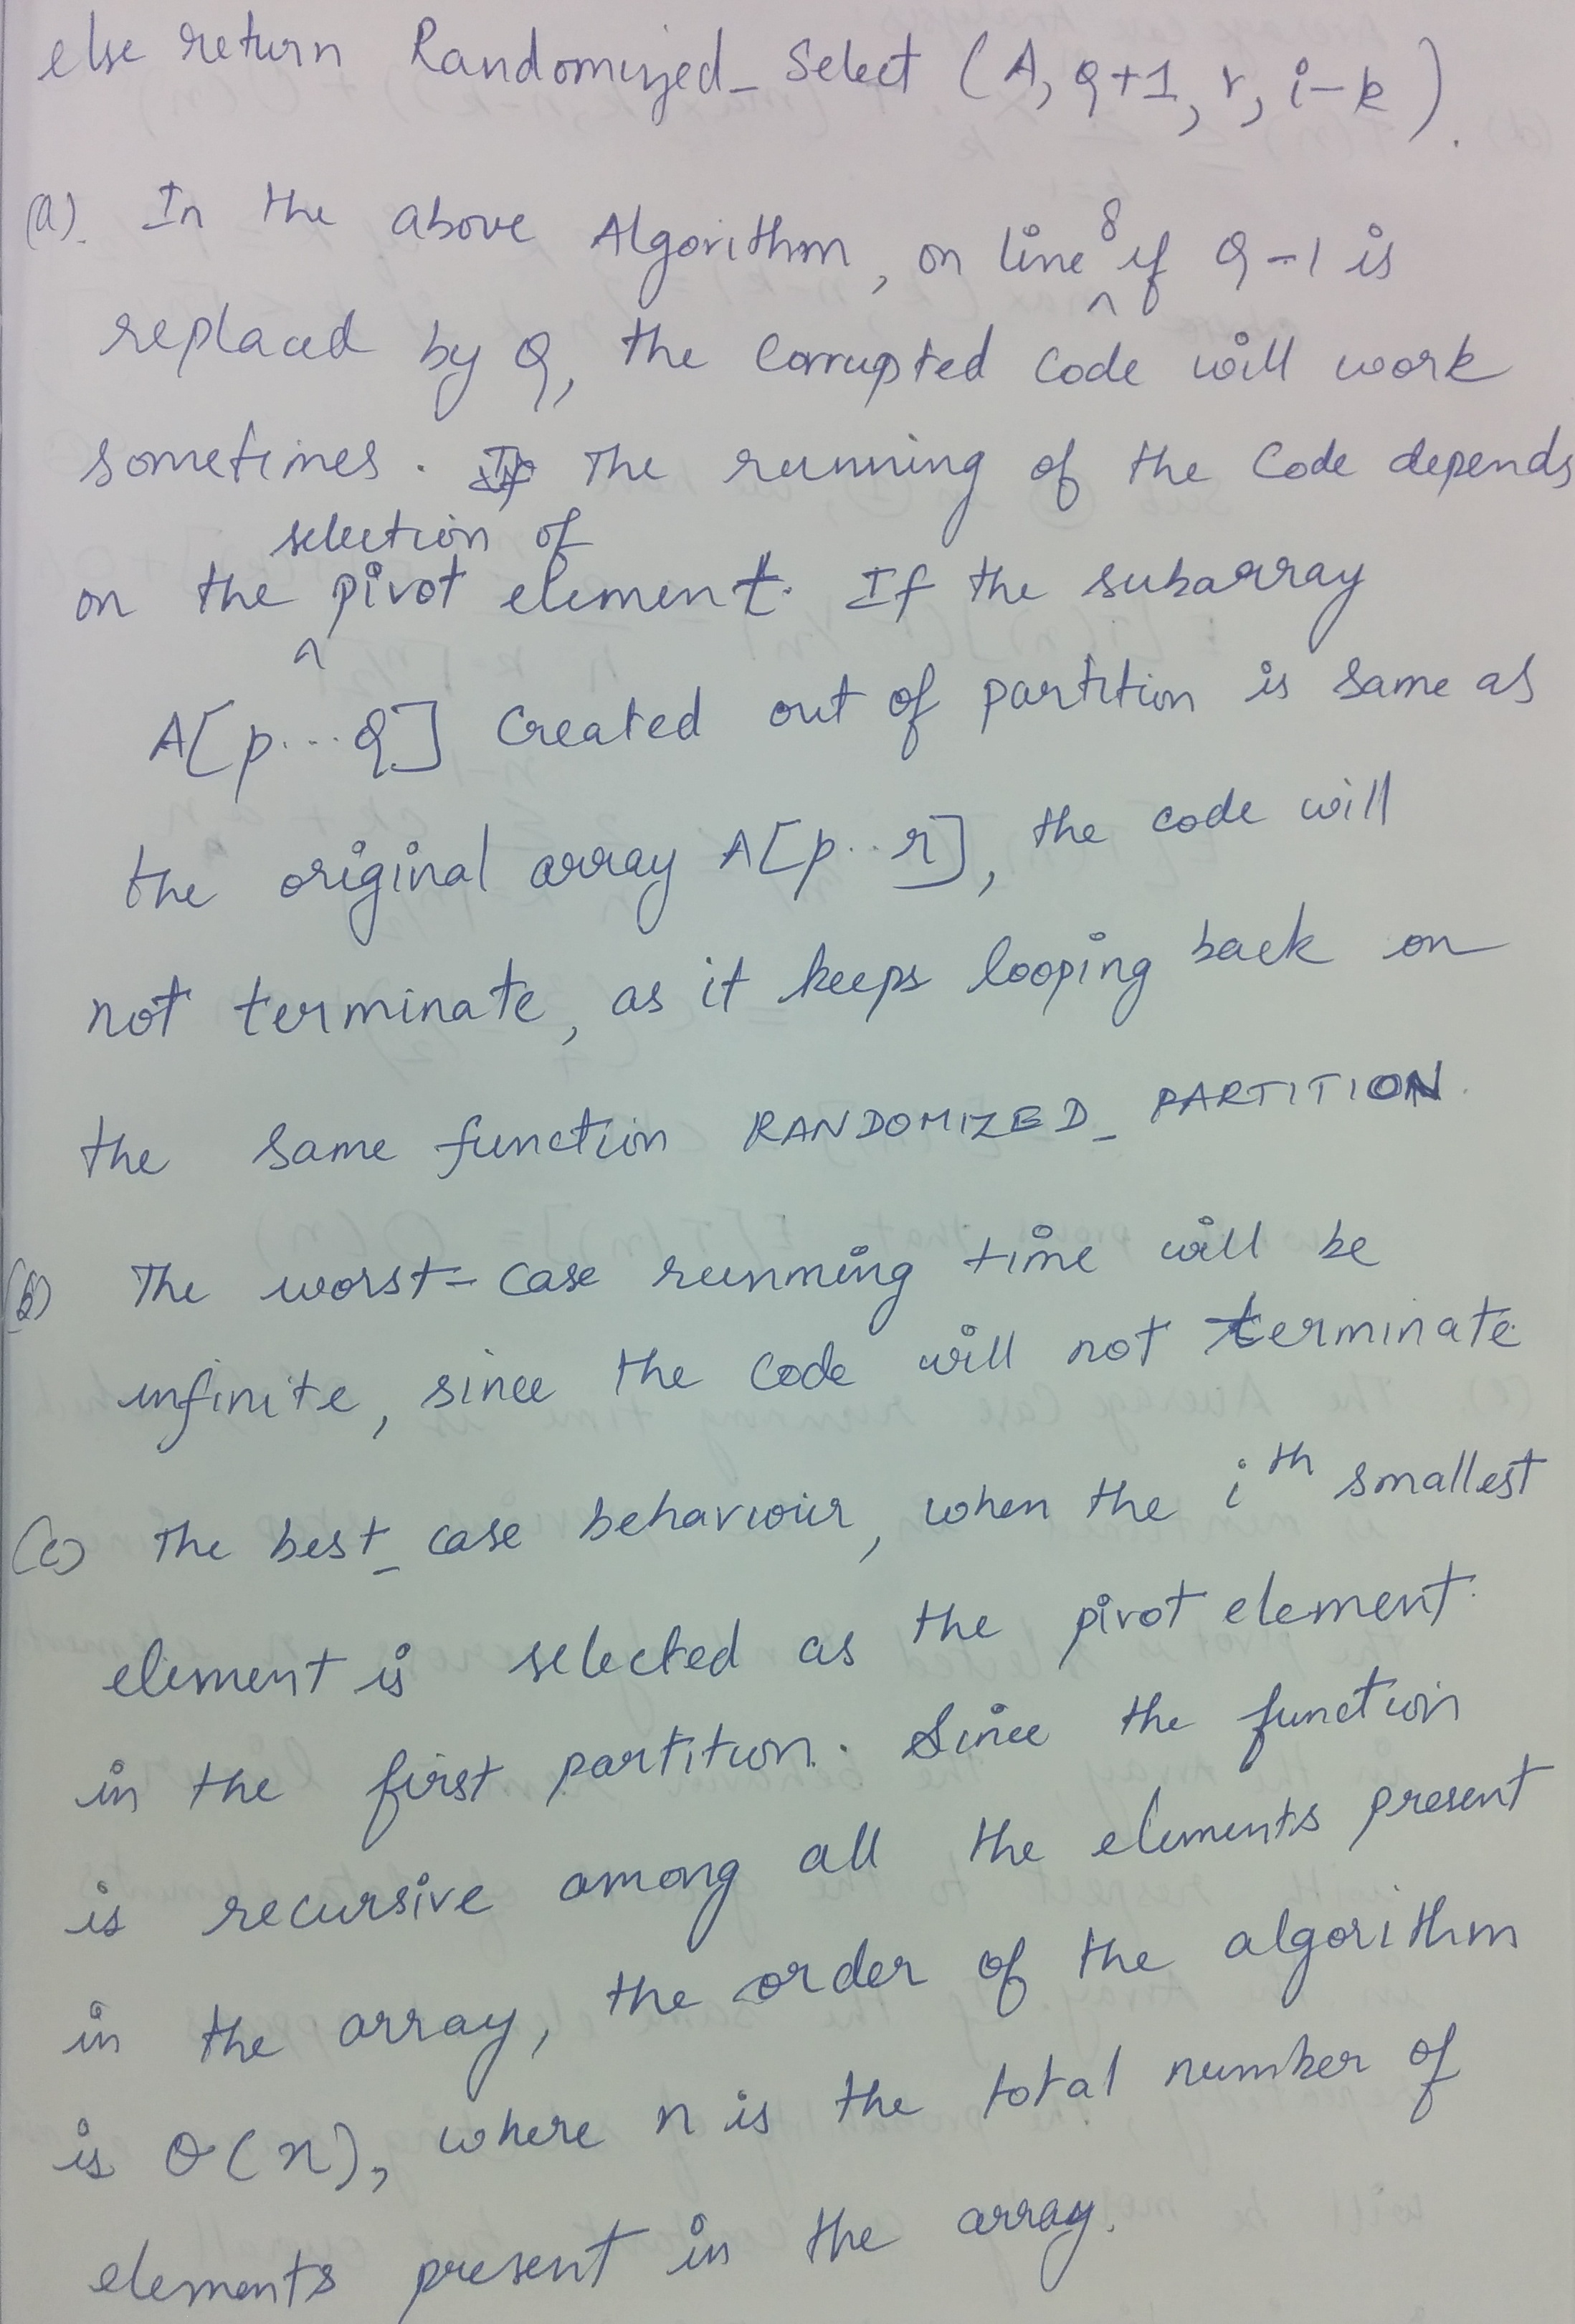 else return Randomized_Select (A, Q+1, r, i-k).
(a). In the above Algorithm, on line 8 if Q-1 is
replaced by Q, the Corrupted Code will work
sometimes. The running of the Code depends
on the selection of pivot element. If the subarray
A[p...Q] Created out of partition is same as
the original array A[p..r], the code will
not terminate, as it keeps looping back on
the same function RANDOMIZED_PARTITION.
(b) The worst-case running time will be
infinite, since the code will not terminate.
(c) The best_case behaviour, when the ith smallest
element is selected as the pivot element
in the first partition. Since the function
is recursive among all the elements present
in the array, the order of the algorithm
is O(n), where n is the total number of
elements present in the array.